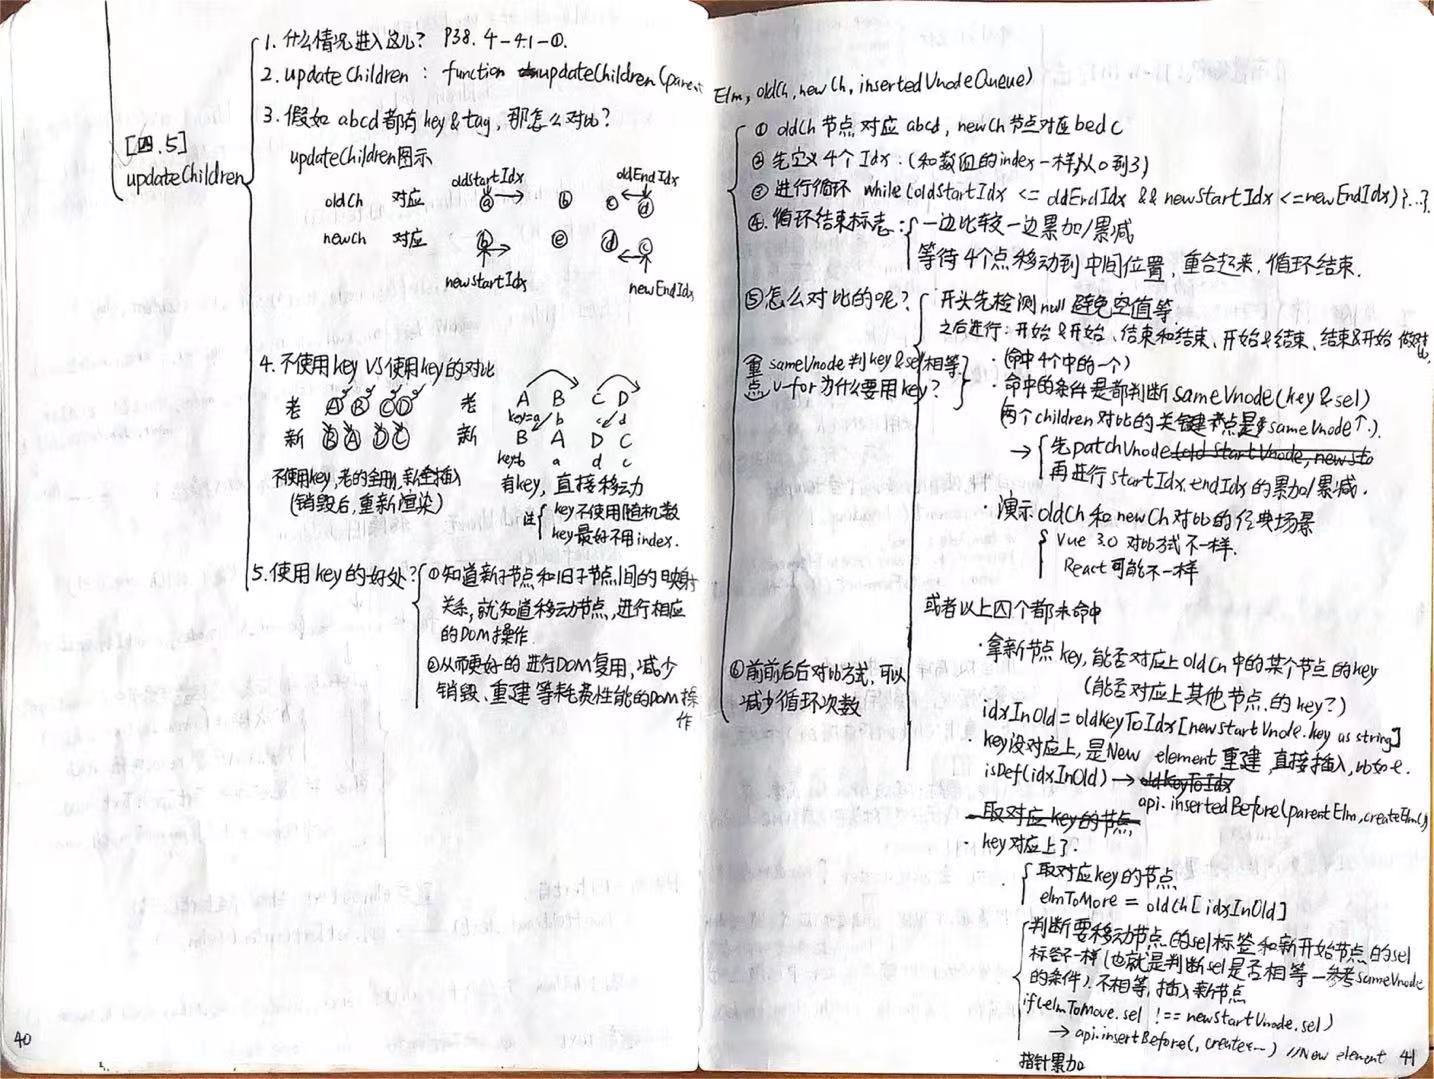 [四.5]
updateChildren
1. 什么情况进入这儿? P38. 4-4.1-①.
2. updateChildren : function updateChildren(parent
3. 假如 abcd都有 key & tag, 那怎么对比?
updateChildren图示
oldStartIdx oldEndIdx
oldch 对应 a b c d
newch 对应 b e d c
newStartIdx newEndIdx
4. 不使用key VS 使用key的对比
老 A B C D
新 B A D C
不使用key, 老的全删, 新全插入
(销毁后, 重新渲染)
老 A B C D
key=a b c d
新 B A D C
key=b a d c
有key, 直接移动
注 key不使用随机数
key最好不用index.
5. 使用key的好处?
①知道新子节点和旧子节点间的映射
关系, 就知道移动节点, 进行相应
的DOM操作.
②从而更好的进行DOM复用, 减少
销毁、重建等耗费性能的DOM操
作
40
Elm, oldch, newch, insertedVnodeQueue)
① oldch节点对应 abcd, newch节点对应 bedc
② 先定义4个Idx. (和数组的index一样从0到3)
③ 进行循环 while(oldStartIdx <= oldEndIdx && newStartIdx <= newEndIdx){...}.
④. 循环结束标志: 一边比较一边累加/累减
等待4个点移动到中间位置, 重合起来, 循环结束.
⑤怎么对比的呢? 开头先检测null避免空值等.
之后进行: 开始&开始、结束和结束、开始&结束、结束&开始 做对比
重点 sameVnode判key&sel相等
v-for为什么要用key?
· (命中4个中的一个)
· 命中的条件是都判断 sameVnode(key & sel)
(两个children对比的关键考点是 sameVnode↑.).
→ 先patchVnode(old StartVnode, newSta
再进行 startIdx, endIdx 的累加/累减.
· 演示 oldch 和 newCh 对比的经典场景
Vue 3.0 对比方式不一样.
React 可能不一样
或者以上四个都未命中
· 拿新节点 key, 能否对应上 oldCh 中的某个节点的key
(能否对应上其他节点的key?)
idxInOld = oldKeyToIdx[newStartVnode.key as string]
· key没对应上, 是New element 重建, 直接插入, 比如e.
isDef(idxInOld) → oldKeyToIdx
api.insertedBefore(parentElm, createElm()
取对应key的节点
· key对应上了.
· 取对应key的节点
elmToMore = oldch[idxInOld]
判断要移动节点的sel标签和新开始节点的sel
标签不一样(也就是判断sel是否相等—参考sameVnode
的条件). 不相等, 插入新节点
if(elmToMove.sel !== newStartVnode.sel)
→ api.insertBefore(, create...) //New element
指针累加
⑥前前后后对比方式, 可以
减少循环次数
41